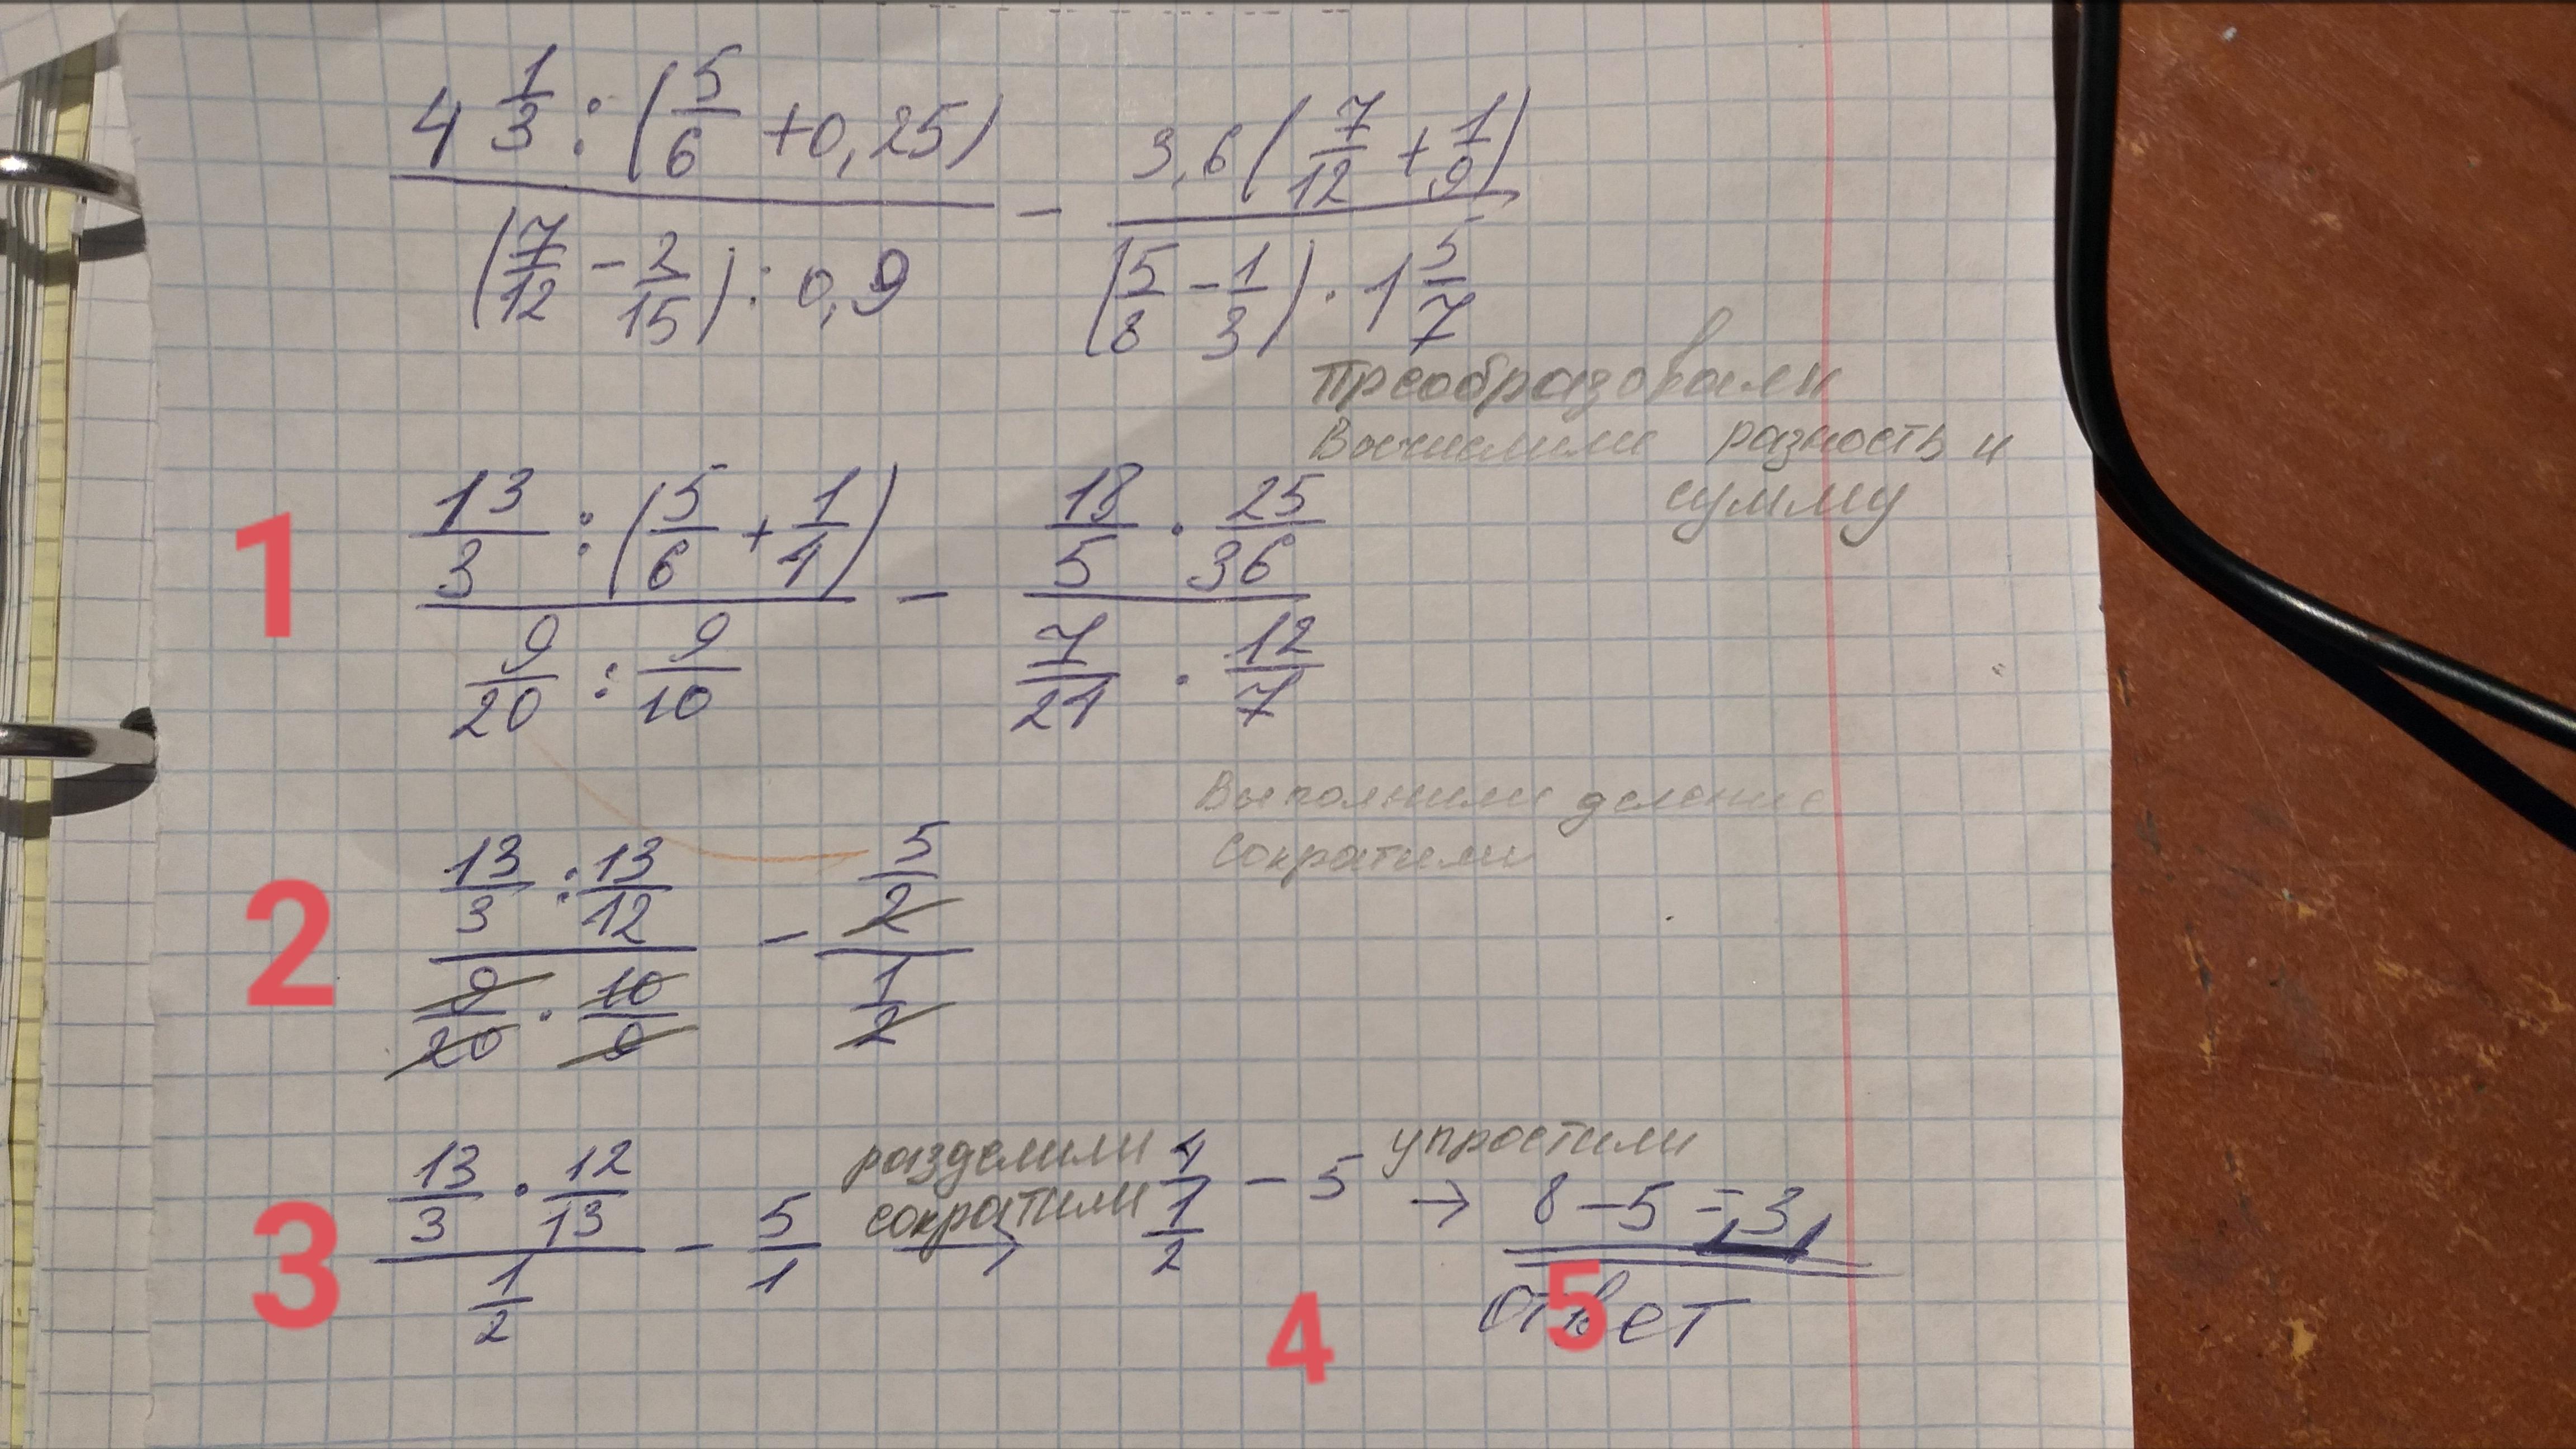 4 1/3 : (5/6 + 0,25)
(7/12 − 2/15) : 0,9
−
3,6 (7/12 + 1/9)
(5/8 − 1/3) · 1 5/7
Преобразовали
Вычислили разность и
сумму
1
13/3 : (5/6 + 1/4)
9/20 : 9/10
−
18/5 · 25/36
7/24 · 12/7
Выполнили деление
сократили
2
13/3 : 13/12
9/20 · 10/9
−
5/2
1/2
3
13/3 · 12/13
1/2
− 5/1
разделили
сократили
→
4
1/2
− 5
упростили
→ 8 − 5 = 3
4
5
ответ